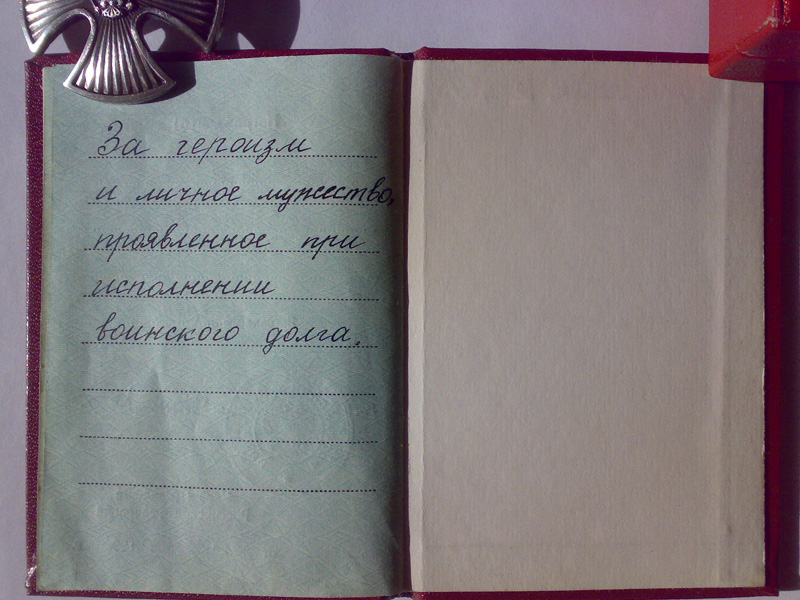 За героизм
и личное мужество,
проявленное при
исполнении
воинского долга.